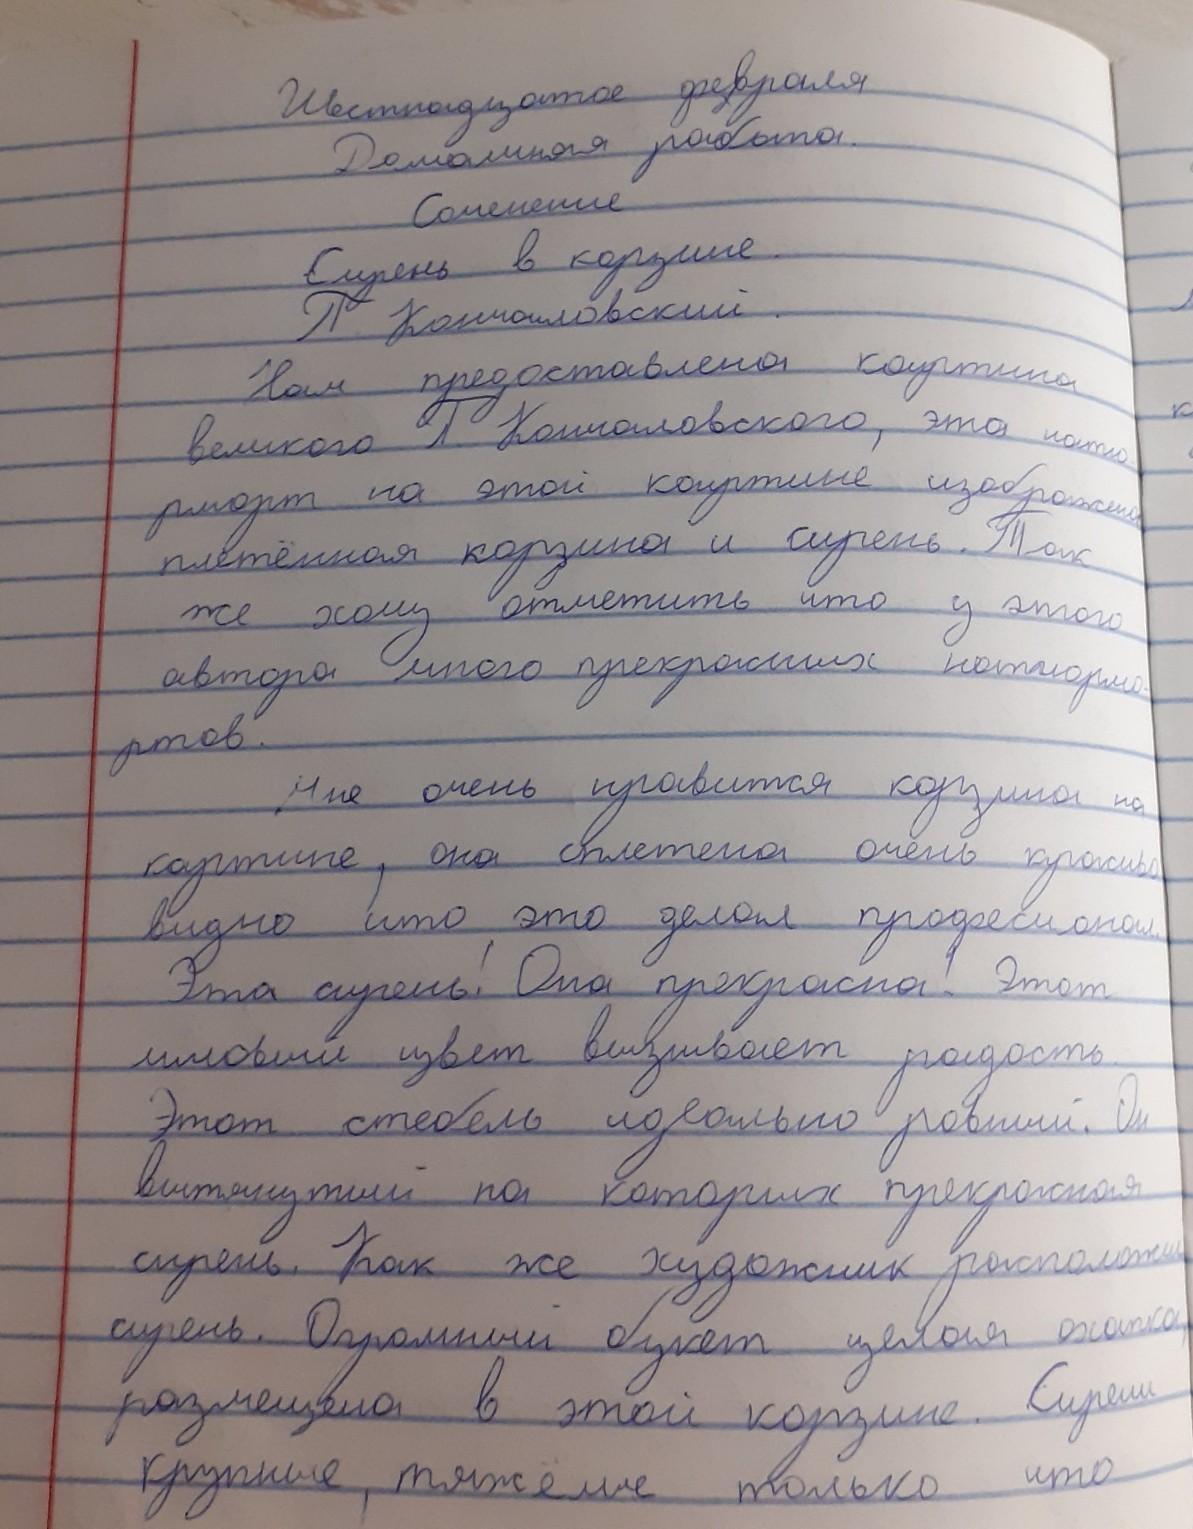 Шестнадцатое февраля
Домашняя работа.
Сочинение
Сирень в корзине.
П. Кончаловский.
Нам предоставлена картина
великого П. Кончаловского, эта натю
рморт на этой картине изображена
плетённая корзина и сирень. Так
же хочу отметить что у этого
автора много прекрасних
ртов.
Мне очень нравится корзина на
картине, она сплетена очень красиво
видно что это делал професионал.
Эта сирень! Она прекрасна! Этот
лиловый цвет вызывает радость.
Этот стебель идеально ровный. Он
вытянутый на которых прекрасная
сирень. Как же художник расположил
сирень. Огромный букет целая охапка,
размещена в этой корзине. Сирени
крупные, тяжёлые только что